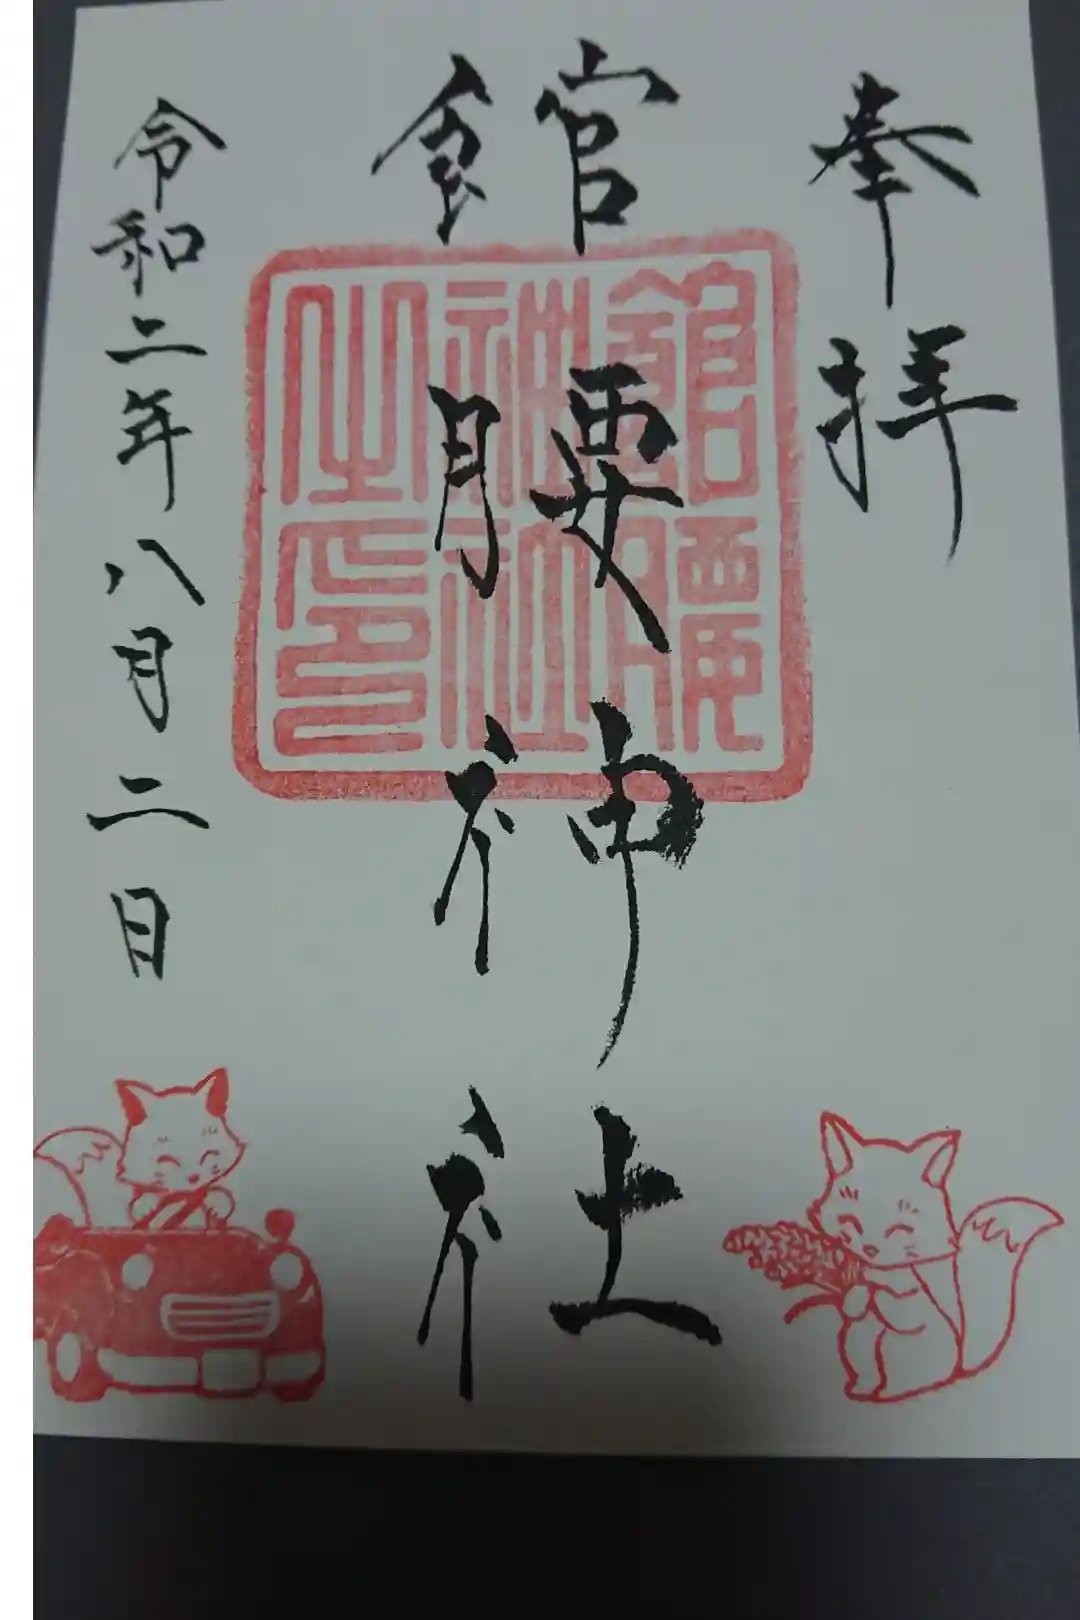 奉拝
館腰神社
館腰神社之印
令和二年八月二日